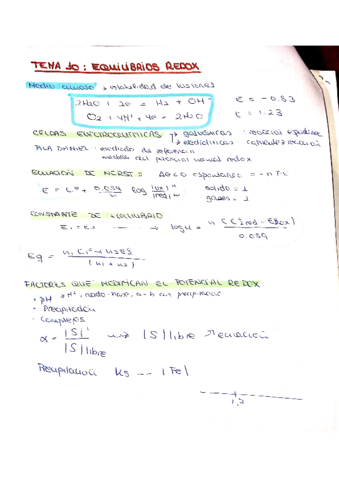 TEMA 10: EQUILIBRIOS REDOX
Medio acuoso → estabilidad de las iones
2H2O + 2e = H2 + OH⁻ E = -0.83
O2 + 4H⁺ + 4e = 2H2O E = 1.23
CELDAS ELECTROQUIMICAS → galvánicas : reacción espontánea
→ electrolíticas
PILA DANIEL: medición de referencia
medida del potencial normal redox
ECUACIÓN DE NERST: ΔG<0 espontánea = -nFE
E = E° + 0.059/n log |ox|ⁿ/|red|ᵐ sólido = 1
gases = 1
CONSTANTE DE EQUILIBRIO
E1 = E2 → log K = n (E red - E ox)/0.059
Eq = n1 E1° + n2 E2°/(n1 + n2)
FACTORES QUE MODIFICAN EL POTENCIAL REDOX
• pH → H⁺, a-b con precipitación
• Precipitación
- Complejos
α = |S|'/|S|libre → |S|libre → ecuación
Precipitación Ks -- |Fe|
1,2